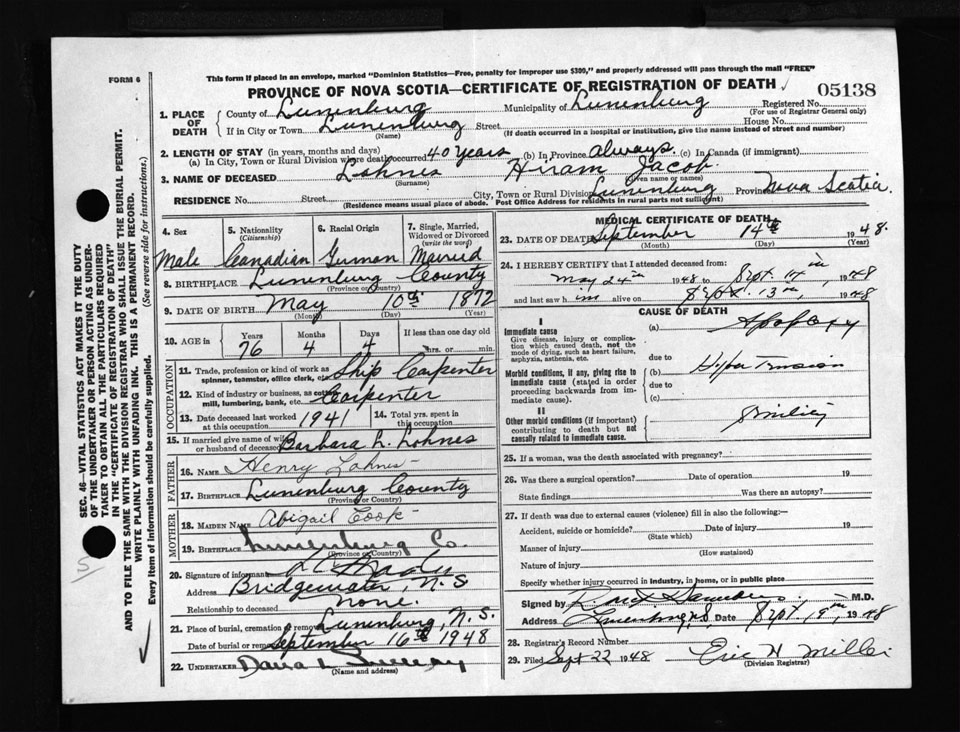 FORM 6
This form if placed in an envelope, marked "Dominion Statistics—Free, penalty for improper use $300," and properly addressed will pass through the mail "FREE"
PROVINCE OF NOVA SCOTIA—CERTIFICATE OF REGISTRATION OF DEATH
05138
1. PLACE OF DEATH
County of Lunenburg Municipality of Lunenburg Registered No.
(For use of Registrar General only)
If in City or Town Lunenburg Street House No.
(Name) (If death occurred in a hospital or institution, give the name instead of street and number)
2. LENGTH OF STAY (in years, months and days)
(a) In City, Town or Rural Division where death occurred 40 years (b) In Province always. (c) In Canada (if immigrant)
3. NAME OF DECEASED Lohnes Hiram Jacob.
(Surname) (Given name or names)
RESIDENCE No. Street City, Town or Rural Division Lunenburg Province Nova Scotia.
(Residence means usual place of abode. Post Office Address for residents in rural parts not sufficient)
4. Sex
Male
5. Nationality
(Citizenship)
Canadian
6. Racial Origin
German
7. Single, Married, Widowed or Divorced
(write the word)
Married
8. BIRTHPLACE Lunenburg County
(Province or Country)
9. DATE OF BIRTH May 10th 1872
(Month) (Day) (Year)
10. AGE in
Years Months Days If less than one day old
76 4 4 hrs. or min.
OCCUPATION
11. Trade, profession or kind of work as spinner, teamster, office clerk, etc. Ship Carpenter
12. Kind of industry or business, as cotton mill, lumbering, bank, etc. Carpenter
13. Date deceased last worked at this occupation 1941
14. Total yrs. spent in this occupation
15. If married give name of wife or husband of deceased Barbara L. Lohnes
FATHER
16. NAME Henry Lohnes
17. BIRTHPLACE Lunenburg County
(Province or Country)
MOTHER
18. MAIDEN NAME Abigail Cook
19. BIRTHPLACE Lunenburg Co.
(Province or Country)
20. Signature of informant
Address Bridgewater, N. S
Relationship to deceased None.
21. Place of burial, cremation or removal Lunenburg, N. S.
Date of burial or removal September 16th 1948
22. UNDERTAKER
(Name and address)
MEDICAL CERTIFICATE OF DEATH
23. DATE OF DEATH September 14th 1948.
(Month) (Day) (Year)
24. I HEREBY CERTIFY that I attended deceased from:
May 24th 1948 to Sept. 14th, 1948
and last saw him alive on Sept. 13th, 1948
CAUSE OF DEATH
I
Immediate cause
Give disease, injury or complication which caused death, not the mode of dying, such as heart failure, asphyxia, asthenia, etc.
(a) Apoplexy
due to
Morbid conditions, if any, giving rise to immediate cause (stated in order proceeding backwards from immediate cause).
(b) Hypertension
due to
(c)
II
Other morbid conditions (if important) contributing to death but not causally related to immediate cause.
Senility
25. If a woman, was the death associated with pregnancy?
26. Was there a surgical operation? Date of operation 19
State findings Was there an autopsy?
27. If death was due to external causes (violence) fill in also the following:—
Accident, suicide or homicide? Date of injury 19
(State which)
Manner of injury
(How sustained)
Nature of injury
Specify whether injury occurred in industry, in home, or in public place
Signed by Saunders M.D.
Address Lunenburg, N.S Date Sept. 19th, 1948
28. Registrar's Record Number
29. Filed Sept 22 1948. Eric H Miller
(Division Registrar)
SEC. 46—VITAL STATISTICS ACT MAKES IT THE DUTY OF THE UNDERTAKER OR PERSON ACTING AS UNDERTAKER TO OBTAIN ALL THE PARTICULARS REQUIRED IN THE "CERTIFICATE OF REGISTRATION OF DEATH" AND TO FILE THE SAME WITH THE DIVISION REGISTRAR WHO SHALL ISSUE THE BURIAL PERMIT.
WRITE PLAINLY WITH UNFADING INK. THIS IS A PERMANENT RECORD.
Every item of information should be carefully supplied. (See reverse side for instructions.)